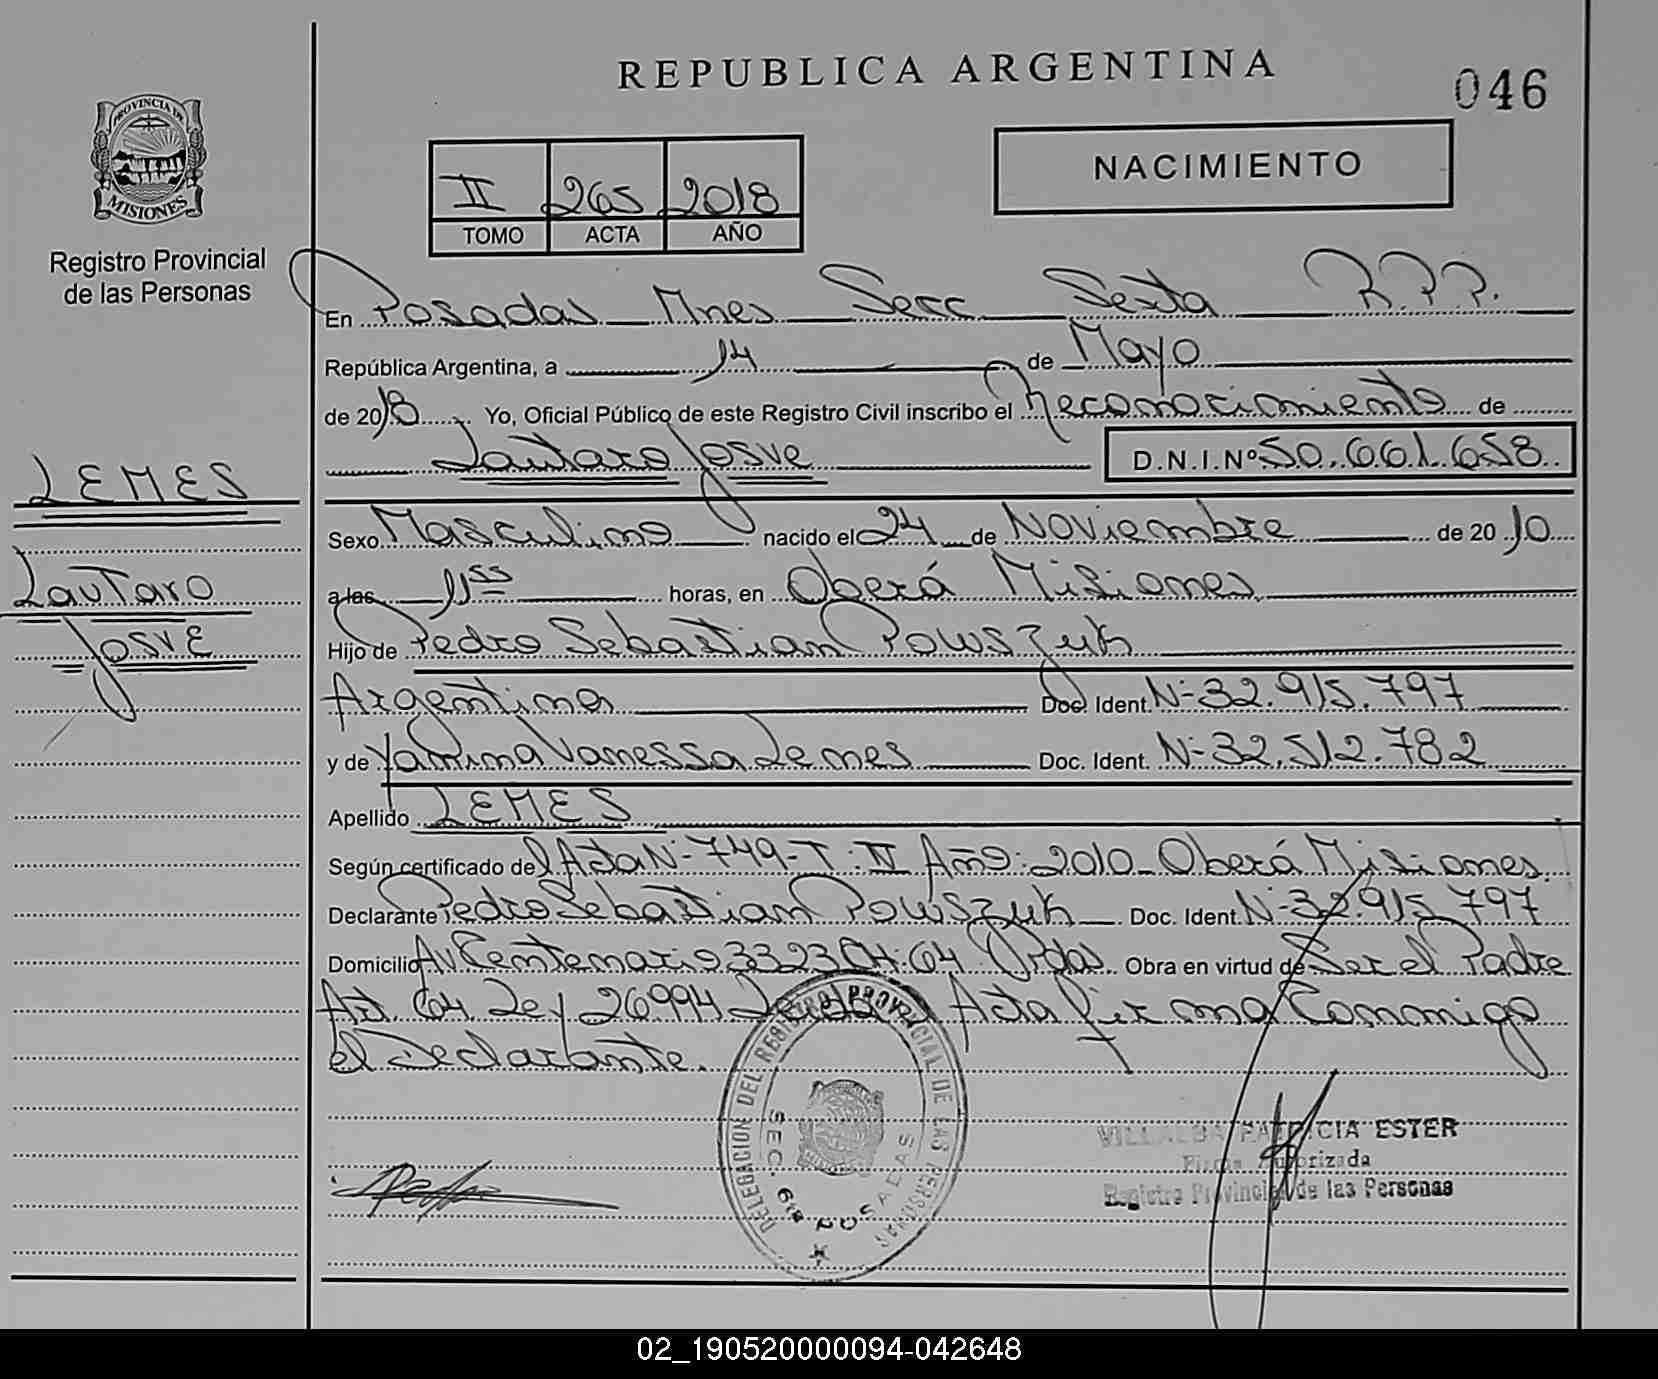 REPUBLICA ARGENTINA
046
PROVINCIA DE
MISIONES
Registro Provincial
de las Personas
II 265 2018
TOMO ACTA AÑO
NACIMIENTO
En Posadas Mnes Secc Sexta R.P.P.
República Argentina, a 14 de Mayo
de 2018. Yo, Oficial Público de este Registro Civil inscribo el Reconocimiento de
Lautaro Josve D.N.I.Nº 50.661.658
LEMES
Sexo Masculino nacido el 24 de Noviembre de 2010
Lautaro
a las 11 55 horas, en Oberá Misiones
Josve
Hijo de Pedro Sebastian Powszuk
Argentina Doc. Ident. Nº 32.915.797
y de Yanina Vanessa Lemes Doc. Ident. Nº 32.512.782
Apellido LEMES
Según certificado del Acta Nº 749-T: IV Año: 2010 - Oberá Misiones.
Declarante Pedro Sebastian Powszuk Doc. Ident. Nº 32.915.797
Domicilio Av Centenario 3323 CH: 64 Pdas Obra en virtud de Ser el Padre
Art. 64 Ley 26994 Acta firma Conmigo
el Declarante.
DELEGACION DEL REGISTRO PROVINCIAL DE LAS PERSONAS
SEC. 6ta POSADAS
VILLALBA PATRICIA ESTER
Firma Autorizada
Registro Provincial de las Personas
02_190520000094-042648